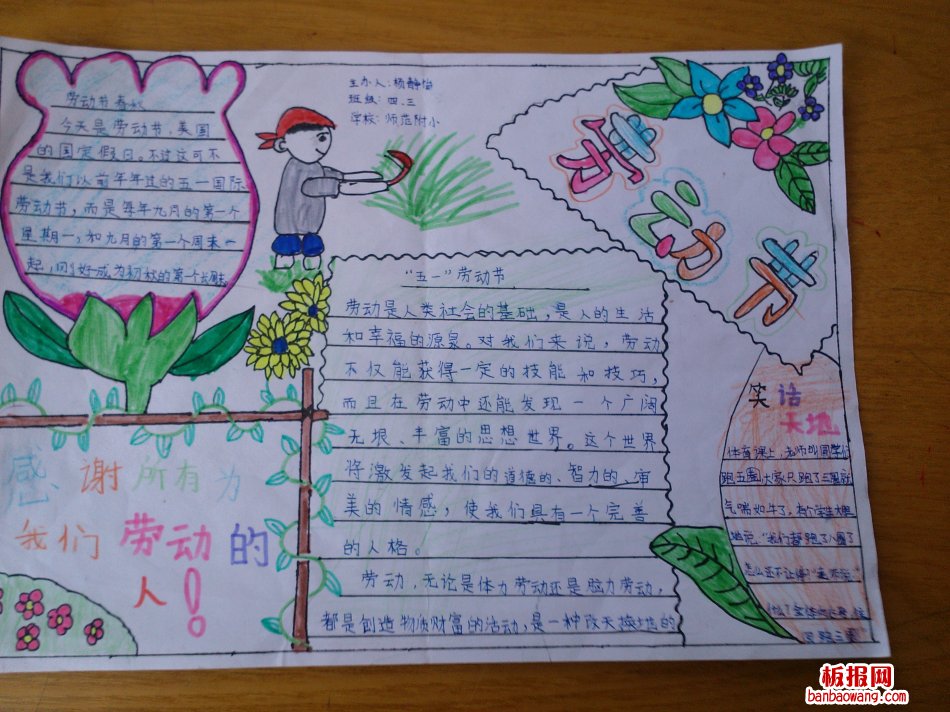 劳动节春秋
今天是劳动节,美国
的国定假日。不过这可不
是我们以前年年过的五一国际
劳动节,而是每年九月的第一个
星期一,和九月的第一个周末一
起,刚好成为初秋的第一个长周末。
主办人:杨静怡
班级:四、三
学校:师范附小
劳动节
“五一”劳动节
劳动是人类社会的基础,是人的生活
和幸福的源泉。对我们来说,劳动
不仅能获得一定的技能和技巧,
而且在劳动中还能发现一个广阔
无垠、丰富的思想世界。这个世界
将激发起我们的道德的、智力的、审
美的情感,使我们具有一个完善
的人格。
劳动,无论是体力劳动还是脑力劳动,
都是创造物质财富的活动,是一种改天换地的
感谢所有为
我们劳动的
人!
笑话
天地
体育课上,老师叫同学们
跑五圈大家只跑了三圈就
气喘如牛了,有个学生大胆
地说:“我们都跑了八圈了
怎么还不让停
回跑三圈
板报网
banbaowang.com